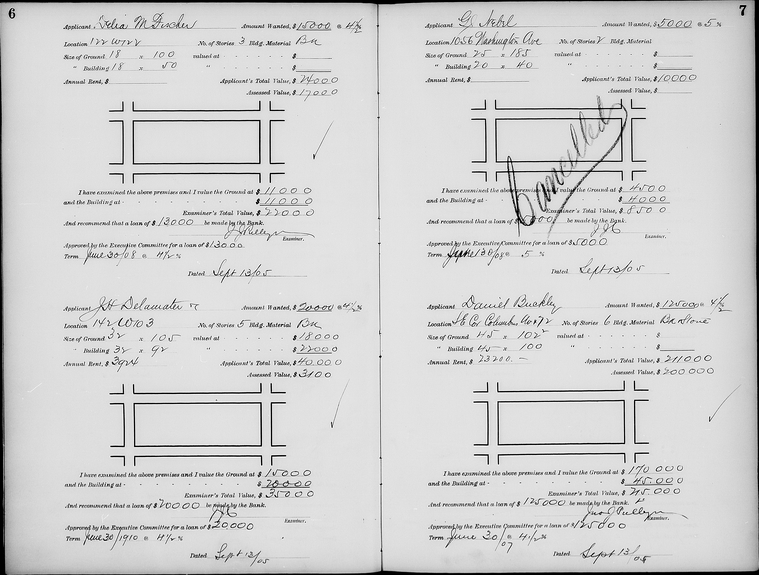 6
Applicant Amount Wanted, $ 15000 @ 4 1/2
Location 122 W 122 No. of Stories 3 Bldg. Material Bn
Size of Ground 18 x 100 valued at $
" Building 18 x 50 " $
Annual Rent, $ Applicant's Total Value, $ 24000
Assessed Value, $ 17000
I have examined the above premises and I value the Ground at $ 11000
and the Building at $ 11000
Examiner's Total Value, $ 22000
And recommend that a loan of $ 13000 be made by the Bank.
Examiner.
Approved by the Executive Committee for a loan of $ 13000
Term June 30/08 @ 4 1/2 %
Dated Sept 13/05
Applicant J H Delamater Amount Wanted, $ 20000 @ 4 1/2 %
Location 142 W 103 No. of Stories 5 Bldg. Material Bn
Size of Ground 32 x 105 valued at $ 18000
" Building 32 x 92 " $ 22000
Annual Rent, $ 3924 Applicant's Total Value, $ 40000
Assessed Value, $ 3100
I have examined the above premises and I value the Ground at $ 15000
and the Building at $ 20000
Examiner's Total Value, $ 35000
And recommend that a loan of $ 20000 be made by the Bank.
Examiner.
Approved by the Executive Committee for a loan of $ 20,000
Term June 30/1910 @ 4 1/2 %
Dated Sept 13/05
7
Applicant G Nebel Amount Wanted, $ 5000 @ 5 %
Location 1056 Washington Ave No. of Stories 2 Bldg. Material
Size of Ground 25 x 185 valued at $
" Building 20 x 40 " $
Annual Rent, $ Applicant's Total Value, $ 10000
Assessed Value, $
Cancelled
I have examined the above premises and I value the Ground at $ 4500
and the Building at $ 4000
Examiner's Total Value, $ 8500
And recommend that a loan of $ 5000 be made by the Bank.
Examiner.
Approved by the Executive Committee for a loan of $ 5000
Term 30/08 @ 5 %
Dated Sept 13/05
Applicant Daniel Buckley Amount Wanted, $ 125000 @ 4 1/2
Location Cor Columbus Av & 72 No. of Stories 6 Bldg. Material Bn Stone
Size of Ground 45 x 102 2 valued at $
" Building 45 x 100 " $
Annual Rent, $ 23200.– Applicant's Total Value, $ 211000
Assessed Value, $ 200000
I have examined the above premises and I value the Ground at $ 170000
and the Building at $ 45.000
Examiner's Total Value, $ 215.000
And recommend that a loan of $ 125000 be made by the Bank.
Examiner.
Approved by the Executive Committee for a loan of $ 125000
Term June 30/07 @ 4 1/2 %
Dated Sept 13/05